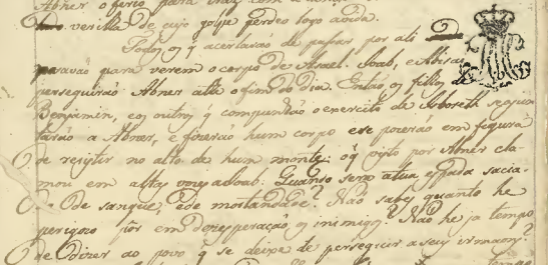 Abner o ferio para traz com a
verilha de cujo golpe perdeo logo avida.
Todos os q̃ acertavaõ de passar por ali
paravaõ para verem o corpo de Asael. Joab, e Abisai
perseguiraõ Abner athe o fim do dia. Entaõ os filhos de
Benjamin, e os outros q̃ compunhaõ o exercito de Isboseth se
a Abner, e fizeraõ hum corpo e se pozeraõ em figura
de rezistir no alto de hum monte. o q̃ visto por Abner cla-
mou em altas vozes a Joab. Quando sera a tua espada sacia-
da de sangue e de mortandade? Naõ sabes quanto he
perigozo pôr em dezesperaçaõ os inimigos? Naõ he ja tempo
de dizer ao povo q̃ se deixe de perseguir a seus irmaons?